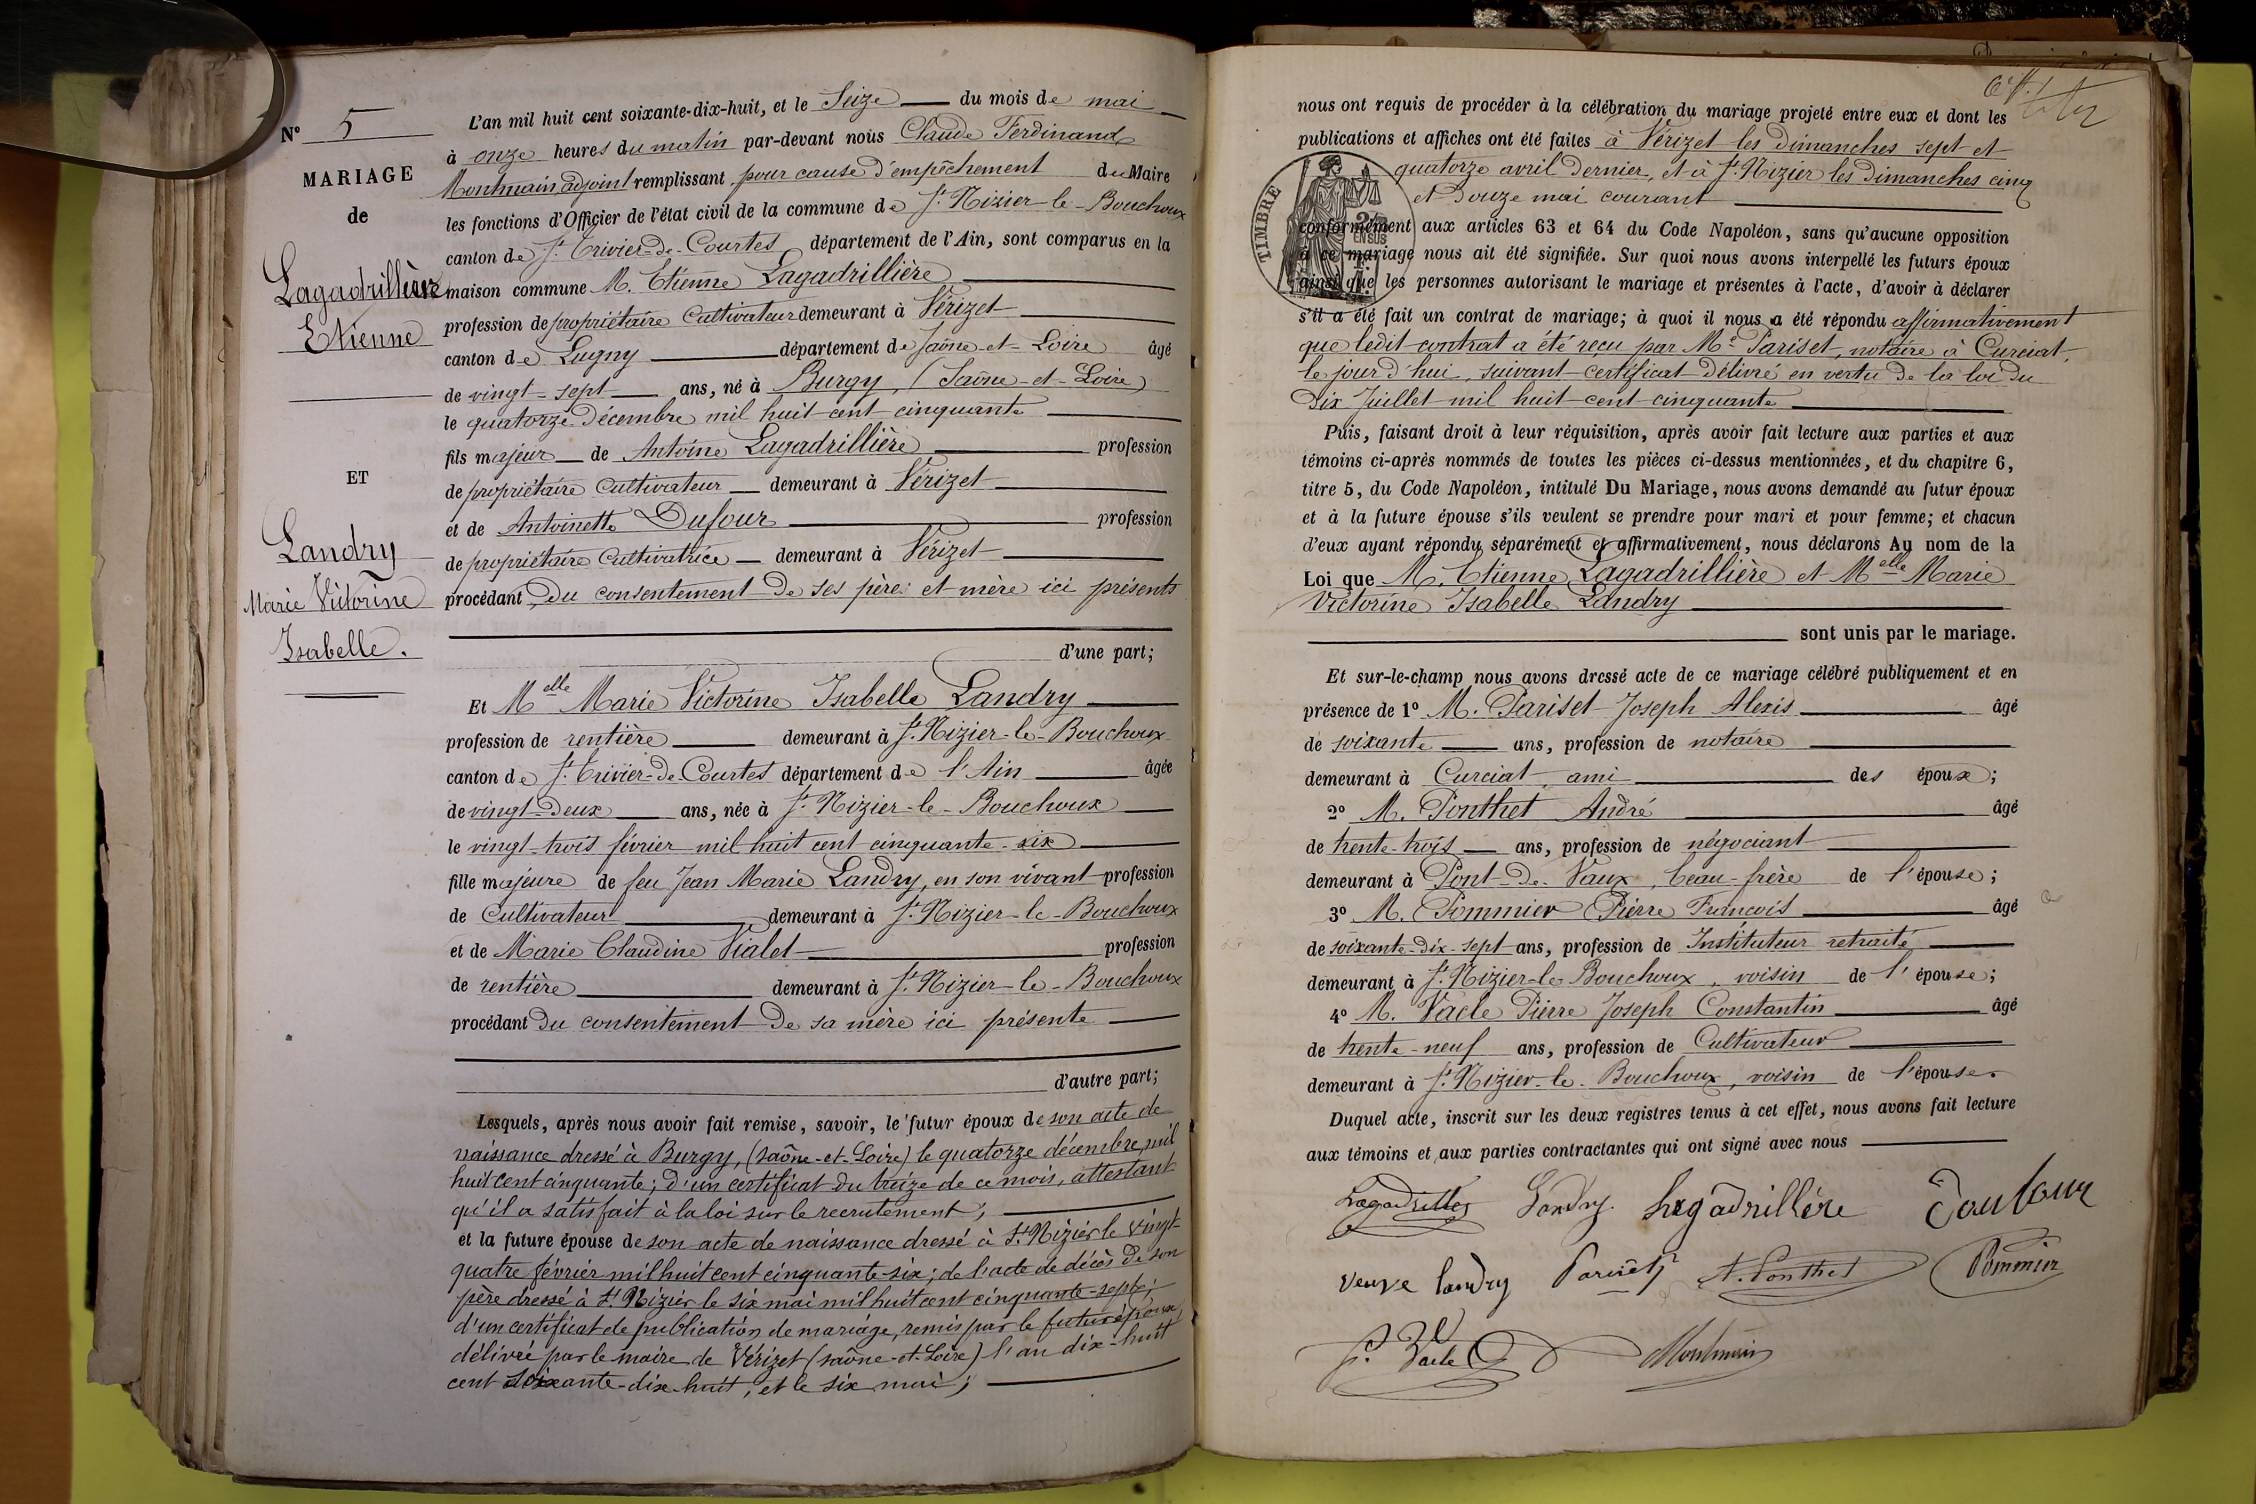 N° 5
MARIAGE
de
Lagadrillière
Etienne
ET
Landry
Marie Victorine
Isabelle.
L'an mil huit cent soixante-dix-huit, et le Seize du mois de mai
à onze heures du matin par-devant nous Claude Ferdinand
Montmain adjoint remplissant, pour cause d'empêchement du Maire
les fonctions d'Officier de l'état civil de la commune de St Nizier-le-Bouchoux
canton de St Trivier-de-Courtes département de l'Ain, sont comparus en la
maison commune M. Etienne Lagadrillière
profession de propriétaire Cultivateur demeurant à Vérizet
canton de Lugny département de Saône-et-Loire âgé
de vingt-sept ans, né à Burgy, (Saône-et-Loire)
le quatorze Décembre mil huit cent cinquante
fils majeur de Antoine Lagadrillière profession
de propriétaire Cultivateur demeurant à Vérizet
et de Antoinette Dufour profession
de propriétaire Cultivatrice demeurant à Vérizet
procédant du consentement de ses père et mère ici présents
d'une part;
Et Melle Marie Victorine Isabelle Landry
profession de rentière demeurant à St Nizier-le-Bouchoux
canton de St Trivier-de-Courtes département de l'Ain âgée
de vingt-deux ans, née à St Nizier-le-Bouchoux
le vingt-trois février mil huit cent cinquante-six
fille majeure de feu Jean Marie Landry, en son vivant profession
de Cultivateur demeurant à St Nizier-le-Bouchoux
et de Marie Claudine Vialet profession
de rentière demeurant à St Nizier-le-Bouchoux
procédant du consentement de sa mère ici présente
d'autre part;
Lesquels, après nous avoir fait remise, savoir, le futur époux de son acte de
naissance dressé à Burgy, (saône-et-Loire) le quatorze décembre, mil
huit cent cinquante; d'un certificat du treize de ce mois, attestant
qu'il a satisfait à la loi sur le recrutement;
et la future épouse de son acte de naissance dressé à St Nizier le vingt
quatre février mil huit cent cinquante-six; de l'acte de décès de son
père dressé à St Nizier le six mai mil huit cent cinquante-sept;
d'un certificat de publication de mariage, remis par le futur époux,
délivré par le maire de Vérizet (saône-et-Loire) l'an dix-huit
cent soixante-dix-huit, et le six mai;
nous ont requis de procéder à la célébration du mariage projeté entre eux et dont les
publications et affiches ont été faites à Vérizet les dimanches sept et
quatorze avril dernier, et à St Nizier les dimanches cinq
et douze mai courant
TIMBRE
conformément aux articles 63 et 64 du Code Napoléon, sans qu'aucune opposition
à ce mariage nous ait été signifiée. Sur quoi nous avons interpellé les futurs époux
ainsi que les personnes autorisant le mariage et présentes à l'acte, d'avoir à déclarer
s'il a été fait un contrat de mariage; à quoi il nous a été répondu affirmativement
que ledit contrat a été reçu par Me Pariset, notaire à Curciat,
le jour d'hui, suivant certificat délivré en vertu de la loi du
dix Juillet mil huit cent cinquante
Puis, faisant droit à leur réquisition, après avoir fait lecture aux parties et aux
témoins ci-après nommés de toutes les pièces ci-dessus mentionnées, et du chapitre 6,
titre 5, du Code Napoléon, intitulé Du Mariage, nous avons demandé au futur époux
et à la future épouse s'ils veulent se prendre pour mari et pour femme; et chacun
d'eux ayant répondu séparément et affirmativement, nous déclarons Au nom de la
Loi que M. Etienne Lagadrillière et Melle Marie
Victorine Isabelle Landry
sont unis par le mariage.
Et sur-le-champ nous avons dressé acte de ce mariage célébré publiquement et en
présence de 1° M. Pariset Joseph Alexis âgé
de soixante ans, profession de notaire
demeurant à Curciat, ami des époux;
2° M. Ponthet André âgé
de trente-trois ans, profession de négociant
demeurant à Pont-de-Vaux, beau-frère de l'épouse;
3° M. Pommier Pierre François âgé
de soixante-dix-sept ans, profession de Instituteur retraité
demeurant à St Nizier-le-Bouchoux, voisin de l'épouse;
4° M. Vacle Pierre Joseph Constantin âgé
de trente-neuf ans, profession de Cultivateur
demeurant à St Nizier-le-Bouchoux, voisin de l'épouse.
Duquel acte, inscrit sur les deux registres tenus à cet effet, nous avons fait lecture
aux témoins et aux parties contractantes qui ont signé avec nous
Landry. Lagadrillière
veuve landry Pariset A. Ponthet Pommier
Vacle Montmain